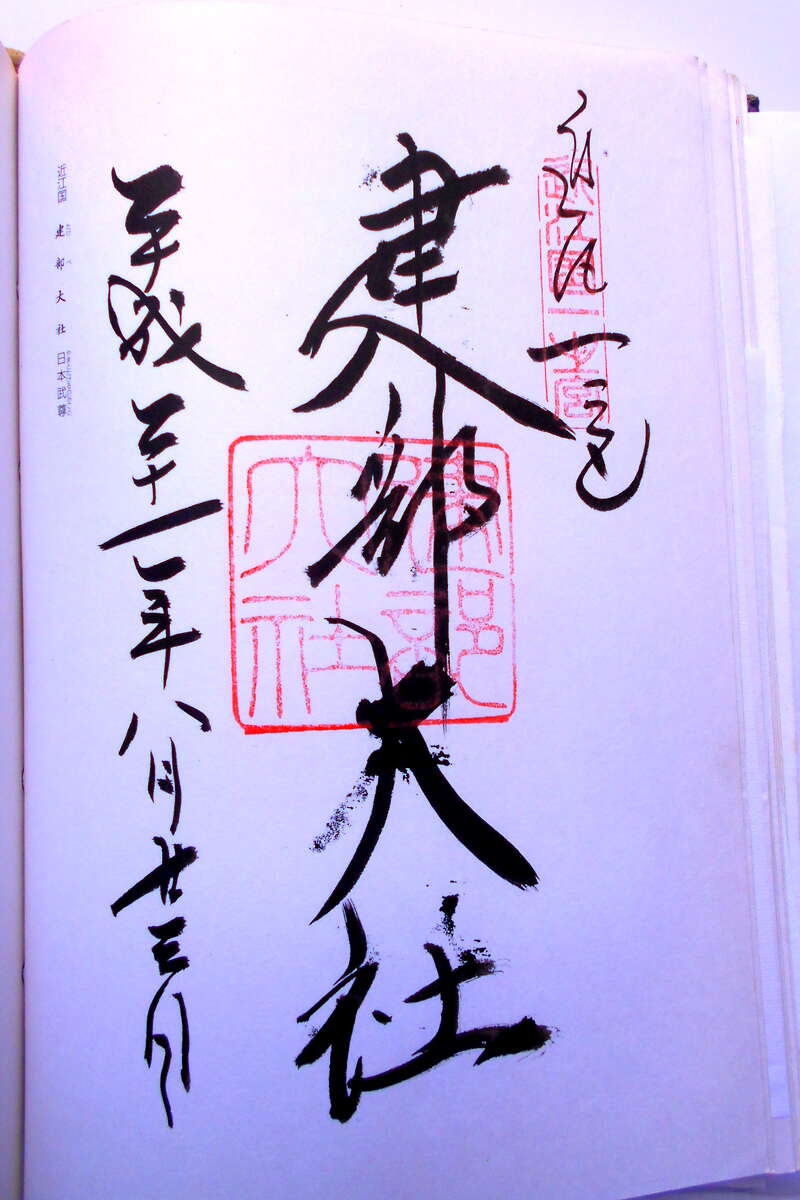 近江國一之宮
一宮
建部大社
建部
大社
平成二十一年八月廿三日
近江国 建部大社 日本武尊